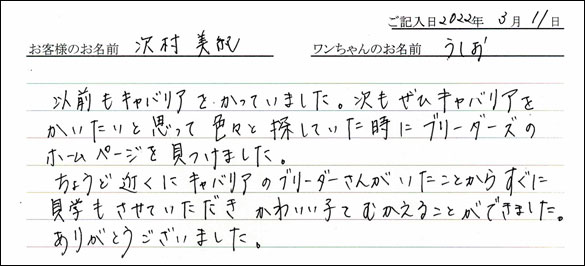 ご記入日2022年 3月 11日
お客様のお名前 沢村 美紀 ワンちゃんのお名前 うしお
以前もキャバリアをかっていました。次もぜひキャバリアを
かいたいと思って色々と探していた時にブリーダーズの
ホームページを見つけました。
ちょうど近くにキャバリアのブリーダーさんがいたことからすぐに
見学もさせていただきかわいい子てむかえることができました。
ありがとうございました。